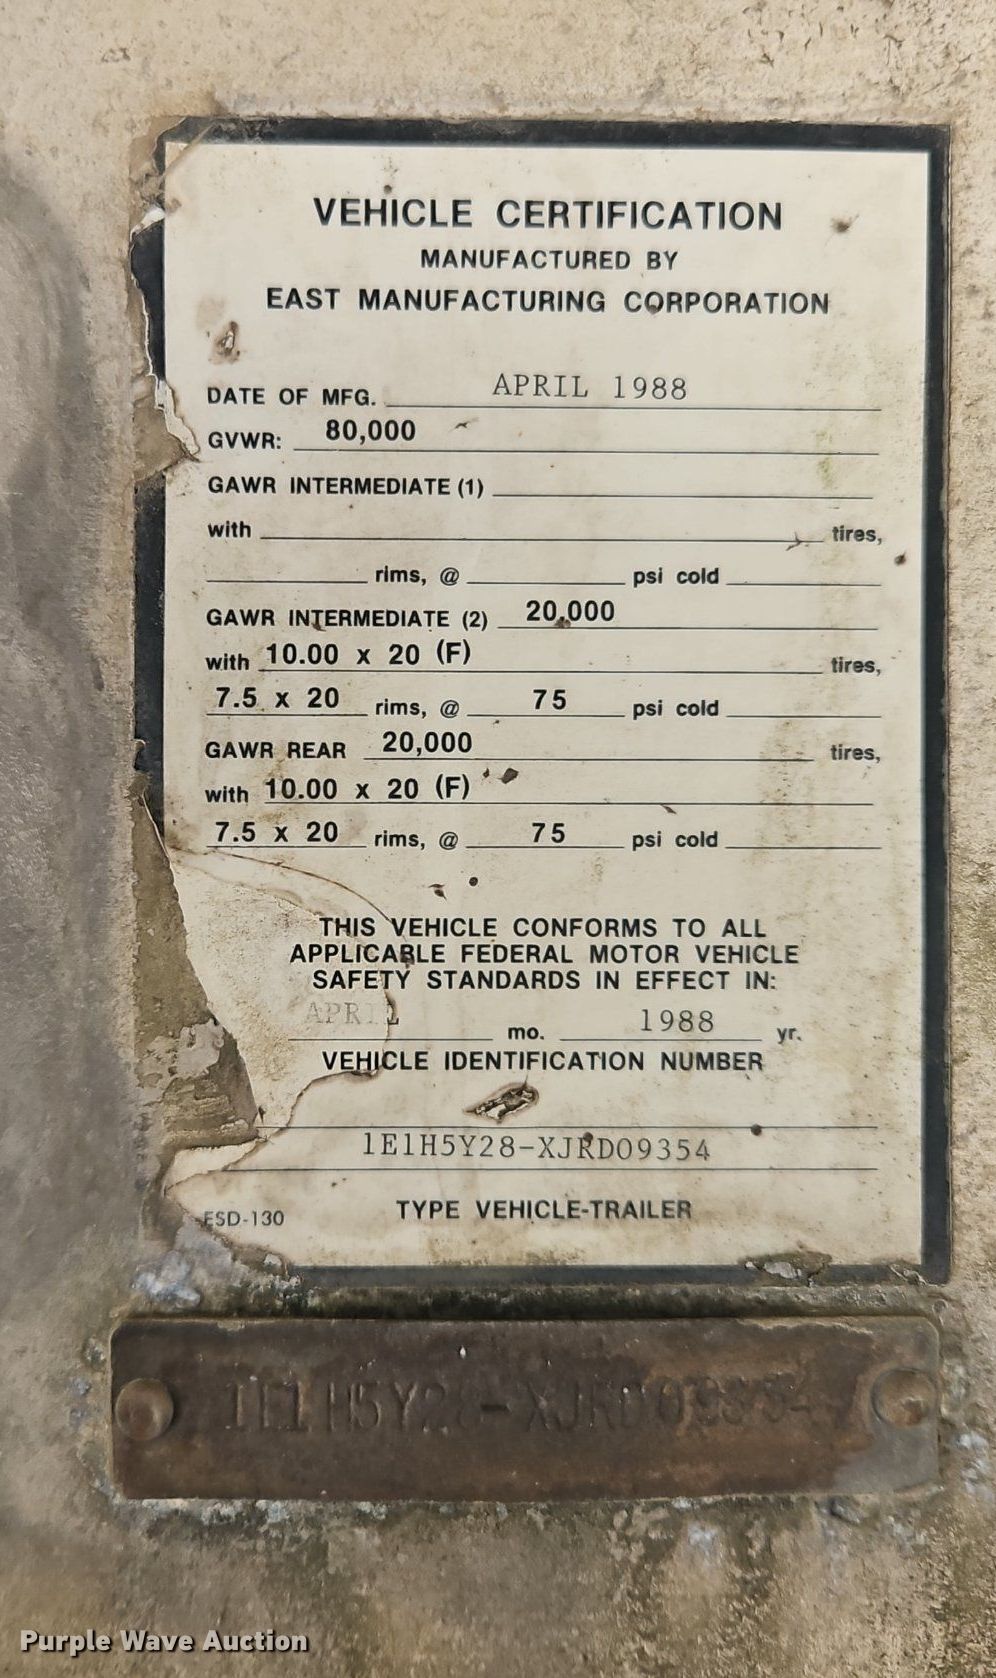 VEHICLE CERTIFICATION
MANUFACTURED BY
EAST MANUFACTURING CORPORATION
DATE OF MFG. APRIL 1988
GVWR: 80,000
GAWR INTERMEDIATE (1)
with tires,
rims, @ psi cold
GAWR INTERMEDIATE (2) 20,000
with 10.00 x 20 (F) tires,
7.5 x 20 rims, @ 75 psi cold
GAWR REAR 20,000 tires,
with 10.00 x 20 (F)
7.5 x 20 rims, @ 75 psi cold
THIS VEHICLE CONFORMS TO ALL
APPLICABLE FEDERAL MOTOR VEHICLE
SAFETY STANDARDS IN EFFECT IN:
APRIL mo. 1988 yr.
VEHICLE IDENTIFICATION NUMBER
1E1H5Y28-XJRD09354
ESD-130 TYPE VEHICLE-TRAILER
1E1H5Y28-XJRD09354
Purple Wave Auction